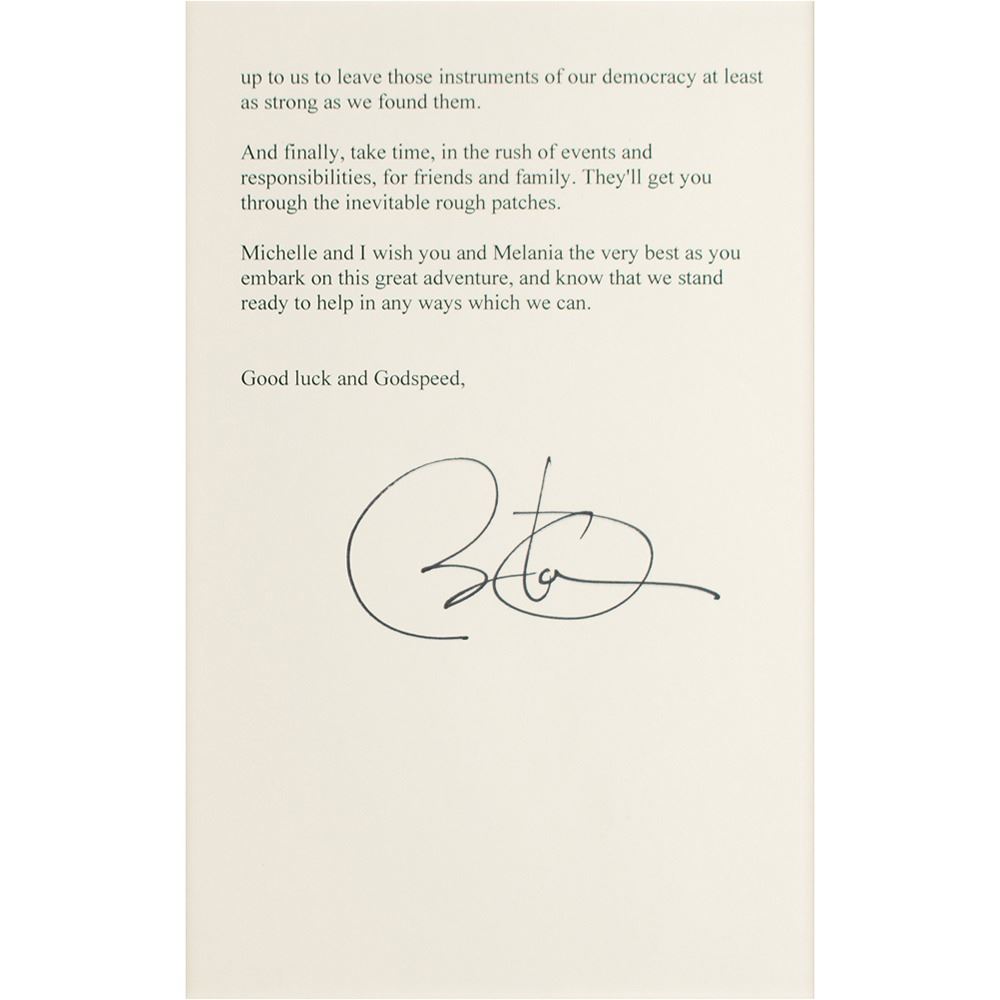 up to us to leave those instruments of our democracy at least
as strong as we found them.
And finally, take time, in the rush of events and
responsibilities, for friends and family. They'll get you
through the inevitable rough patches.
Michelle and I wish you and Melania the very best as you
embark on this great adventure, and know that we stand
ready to help in any ways which we can.
Good luck and Godspeed,